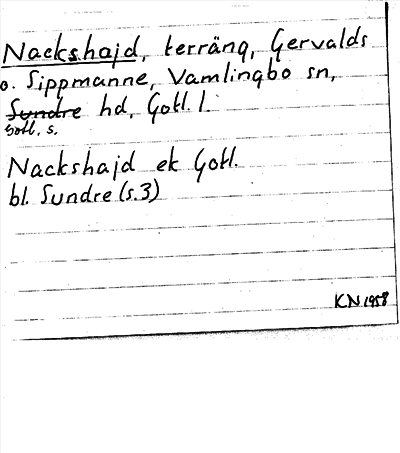 Nackshajd, terräng, Gervalds
o. Sippmanne, Vamlingbo sn,
Sundre hd, Gotl. l.
Gotl. s.
Nackshajd ek Gotl.
bl. Sundre (s.3)
KN 1958